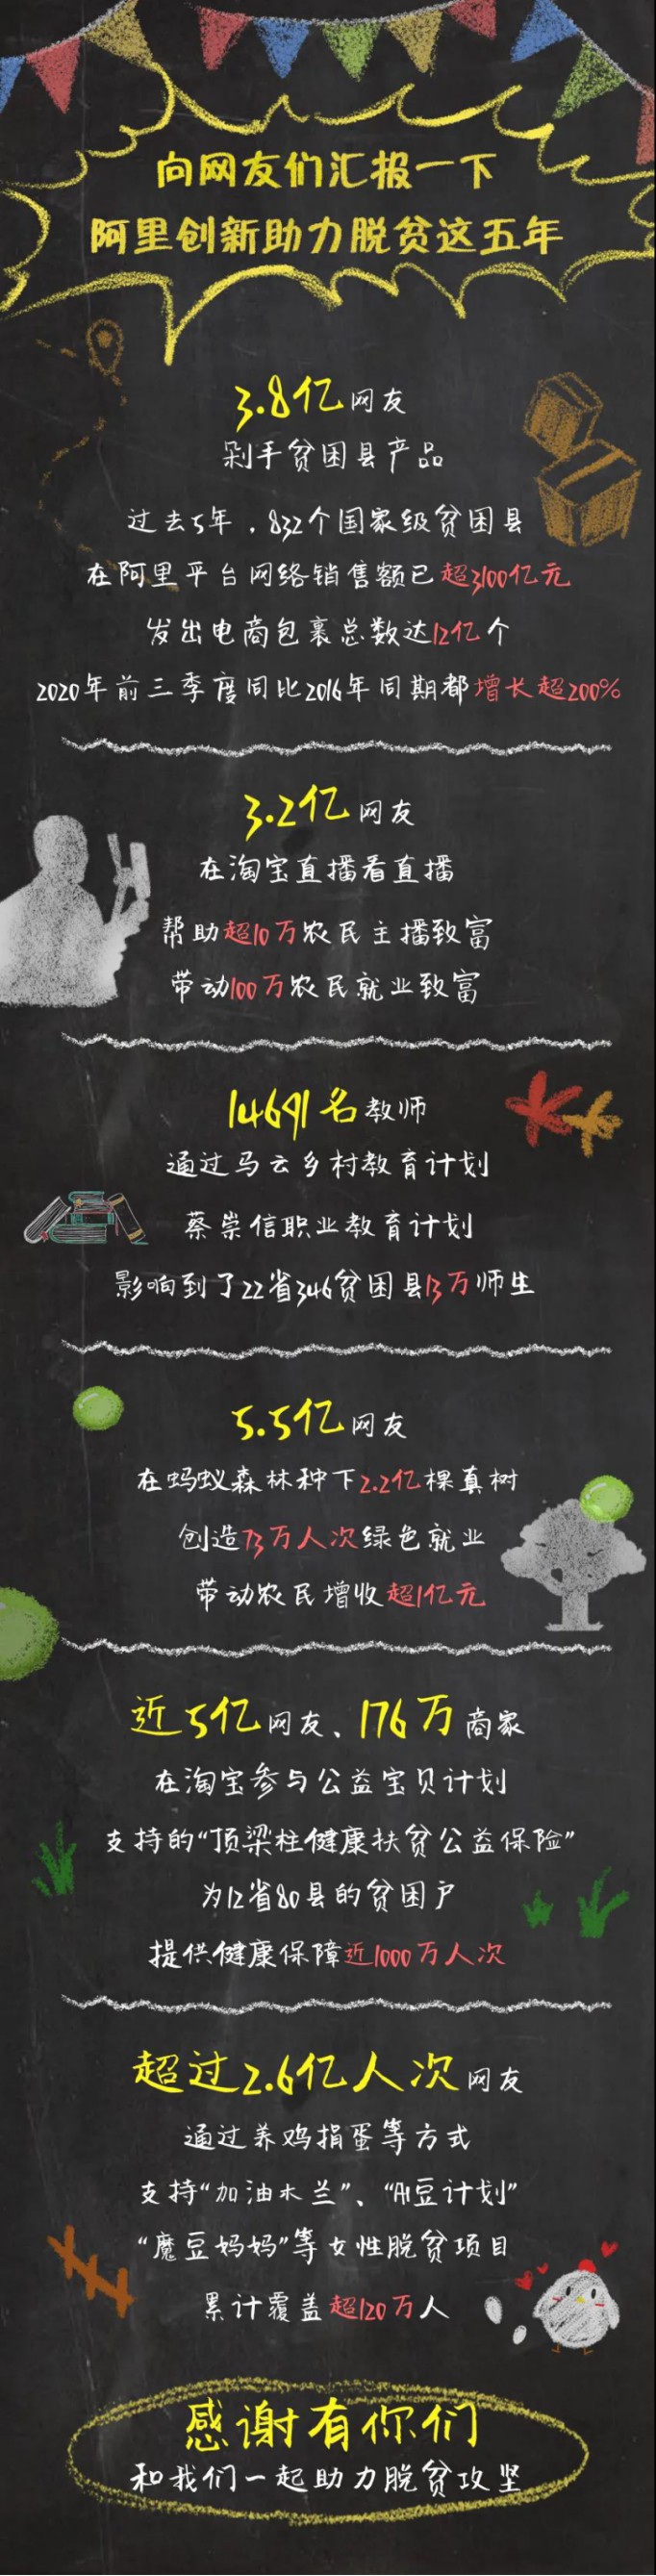 向网友们汇报一下
阿里创新助力脱贫这五年
3.8亿网友
剁手贫困县产品
过去5年，832个国家级贫困县
在阿里平台网络销售额已超3100亿元
发出电商包裹总数达12亿个
2020年前三季度同比2016年同期都增长超200%
3.2亿网友
在淘宝直播看直播
帮助超10万农民主播致富
带动100万农民就业致富
14691名教师
通过马云乡村教育计划
蔡崇信职业教育计划
影响到了22省346贫困县13万师生
5.5亿网友
在蚂蚁森林种下2.2亿棵真树
创造73万人次绿色就业
带动农民增收超1亿元
近5亿网友、176万商家
在淘宝参与公益宝贝计划
支持的“顶梁柱健康扶贫公益保险”
为12省80县的贫困户
提供健康保障近1000万人次
超过2.6亿人次网友
通过养鸡捐蛋等方式
支持“加油木兰”、“AI豆计划”
“魔豆妈妈”等女性脱贫项目
累计覆盖超120万人
感谢有你们
和我们一起助力脱贫攻坚